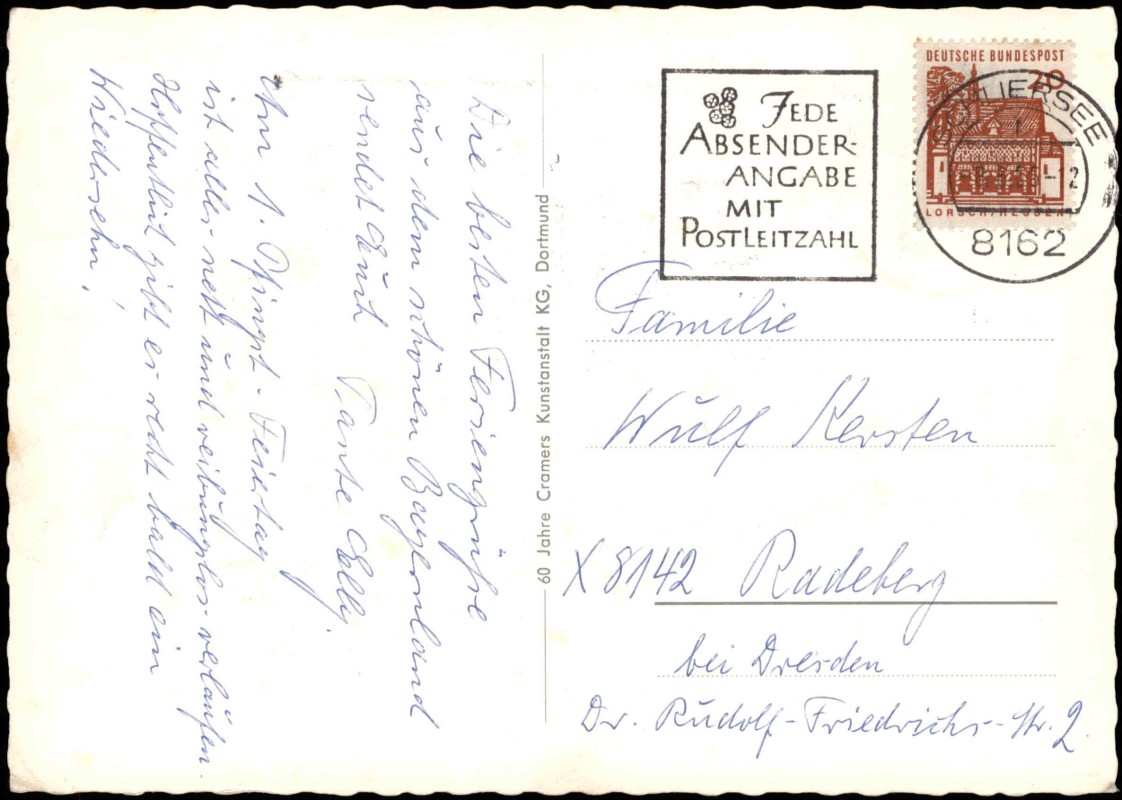 Die besten Feriengrüße
aus dem schönen Bayernland
sendet Euch Tante Elly.
Am 1. Pfingst-Feiertag
ist alles nett und reibungslos verlaufen.
Hoffentlich gibt es recht bald ein
Wiedersehn!
60 Jahre Cramers Kunstanstalt KG, Dortmund
JEDE
ABSENDER-
ANGABE
MIT
POSTLEITZAHL
DEUTSCHE BUNDESPOST
20
LORSCH/HESSEN
SCHLIERSEE
8162
Familie
Wulf Kersten
X 8142 Radeberg
bei Dresden
Dr. Rudolf-Friedrichs-Str. 2